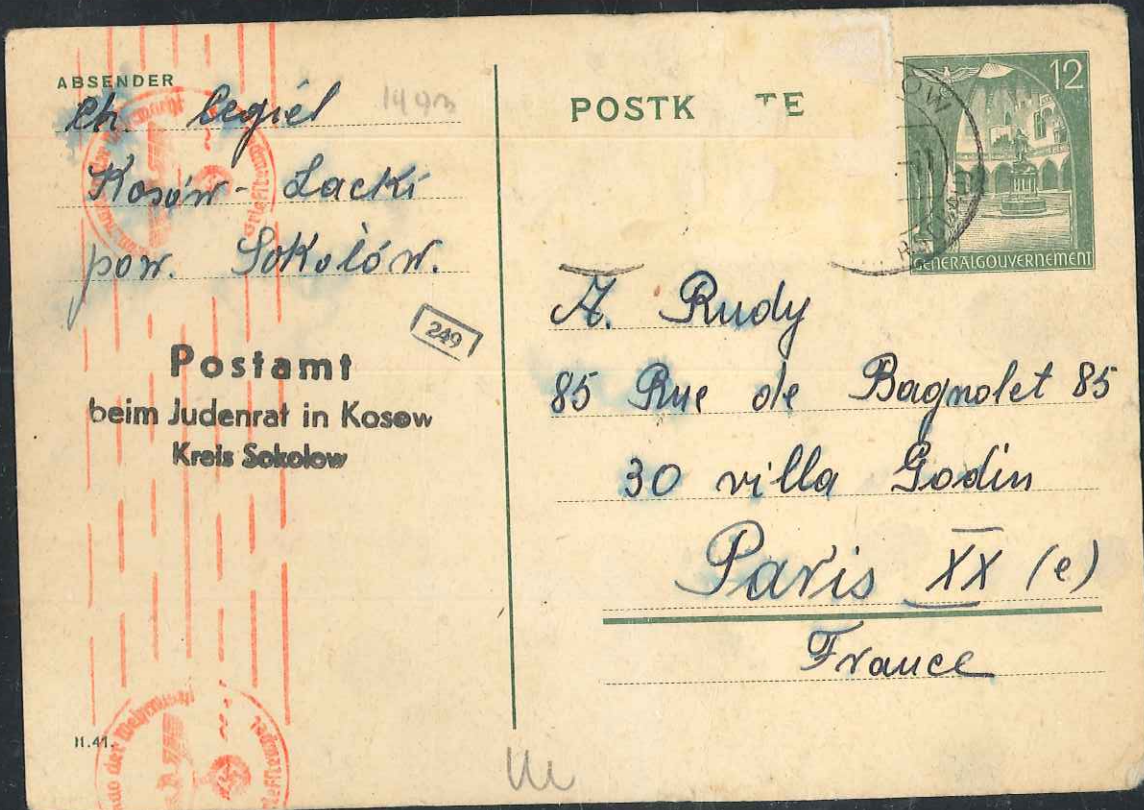 ABSENDER
Ch. Cegiel
Kosów-Lacki
pow. Sokołów.
249
Postamt
beim Judenrat in Kosow
Kreis Sokolow
II.41.
POSTK TE
12
GENERALGOUVERNEMENT
A. Rudy
85 Rue de Bagnolet 85
30 villa Godin
Paris XX (e)
France
der Wehrmacht